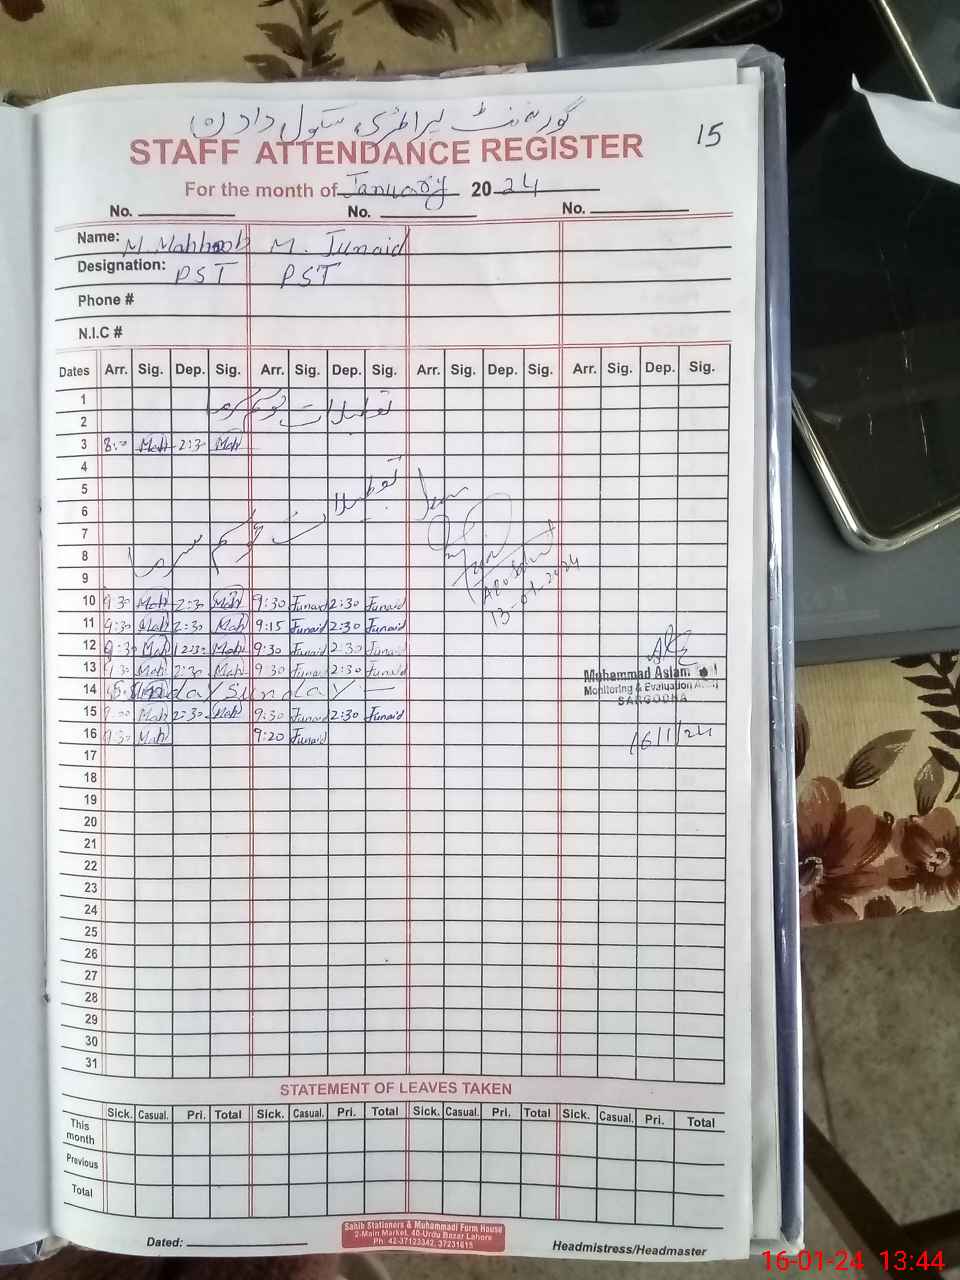 گورنمنٹ پرائمری سکول دادرہ
STAFF ATTENDANCE REGISTER
15
For the month of January 2024
No. No. No.
Name: M. Mahboob M. Junaid
Designation: PST PST
Phone #
N.I.C #
Dates Arr. Sig. Dep. Sig. Arr. Sig. Dep. Sig. Arr. Sig. Dep. Sig. Arr. Sig. Dep. Sig.
1
تعطیلات موسم سرما
2
3 8:00 Mah 2:30 Mah
4
5
تعطیلات موسم سرما
6
7
8
9
10 9:30 Mah 2:30 Mah 9:30 Junaid 2:30 Junaid
11 9:30 Mah 2:30 Mah 9:15 Junaid 2:30 Junaid
13-01-2024
12 9:30 Mah 2:30 Mah 9:30 Junaid 2:30 Junaid
13 9:30 Mah 2:30 Mah 9:30 Junaid 2:30 Junaid
Muhammad Aslam
14 Sunday Sunday
Monitoring & Evaluation
SARGODHA
15 Mah 2:30 Mah 9:30 Junaid 2:30 Junaid
16 9:30 Mah 9:20 Junaid
16/1/24
17
18
19
20
21
22
23
24
25
26
27
28
29
30
31
STATEMENT OF LEAVES TAKEN
Sick. Casual. Pri. Total Sick. Casual. Pri. Total Sick. Casual. Pri. Total Sick. Casual. Pri. Total
This month
Previous
Total
Sahib Stationers & Muhammadi Form House
2-Main Market, 40-Urdu Bazar Lahore
Ph: 42-37123342, 37231615
Dated: Headmistress/Headmaster
16-01-24 13:44